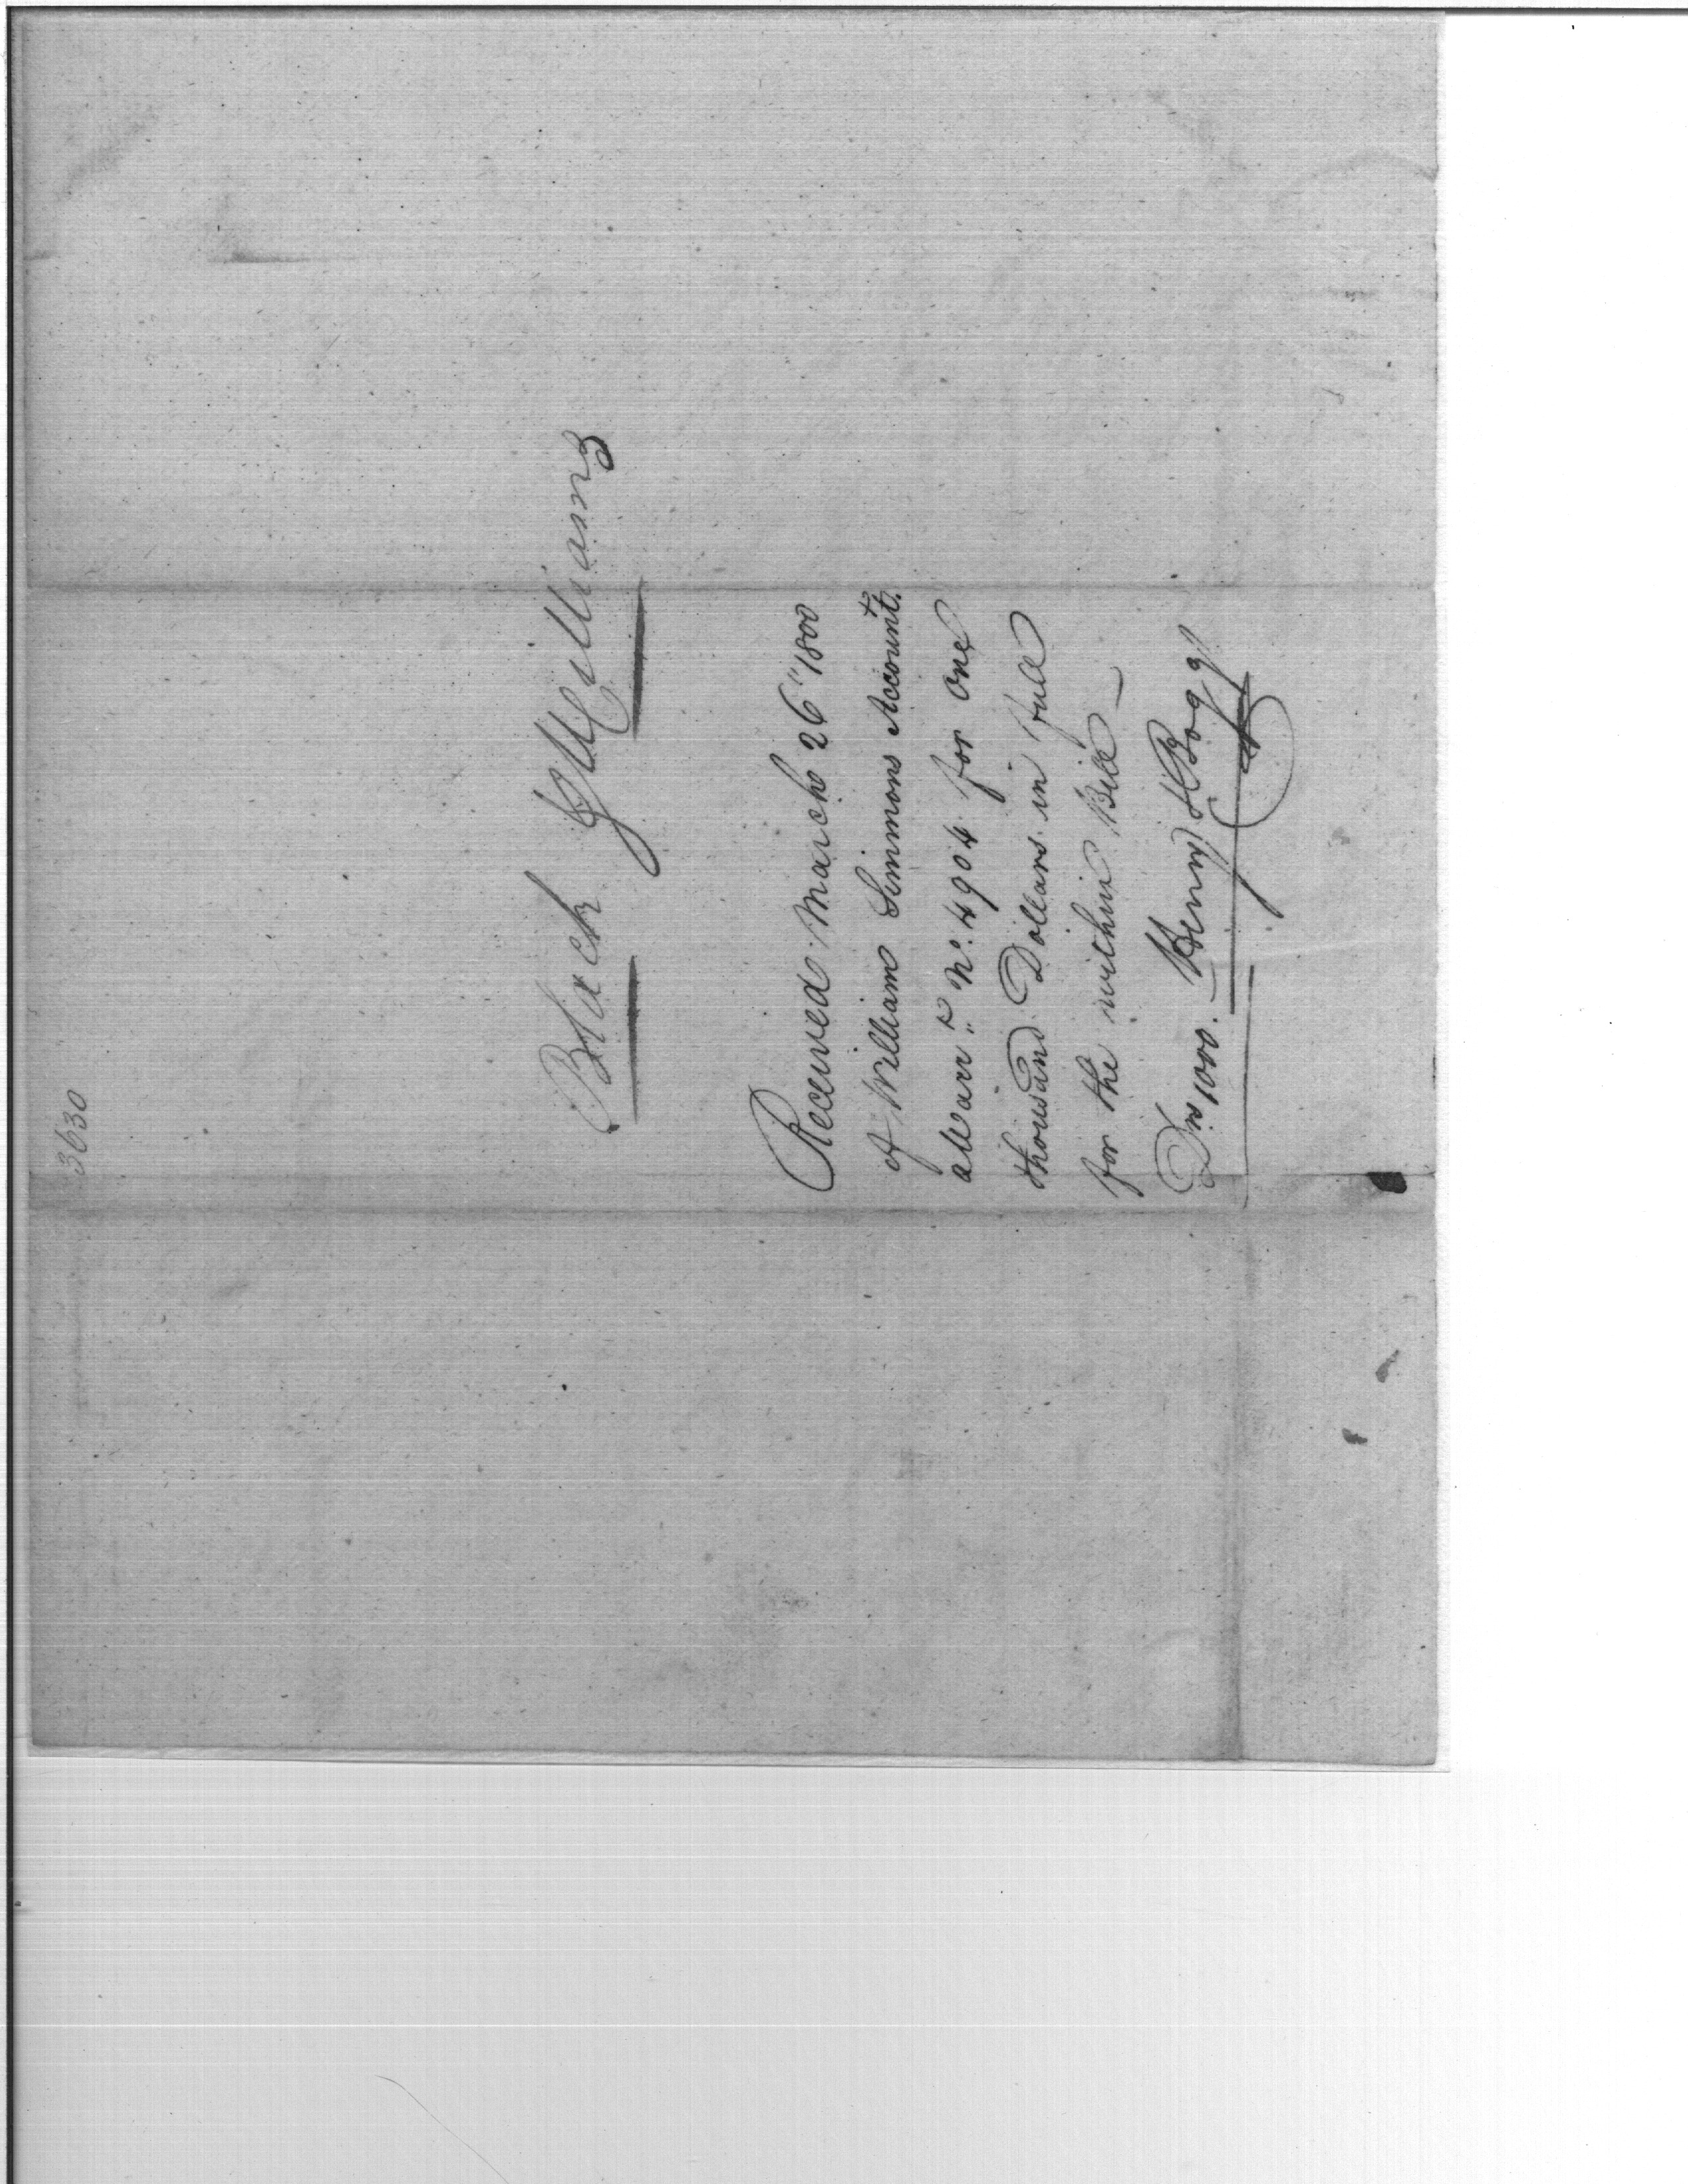 3630
Black JWilliams
Received March 26" 1800
of William Simmons Accountt.
a Warrt. No. 4904 for One
thousand Dollars in full
for the within Bill —
Drs 1000. Henry H Boggs